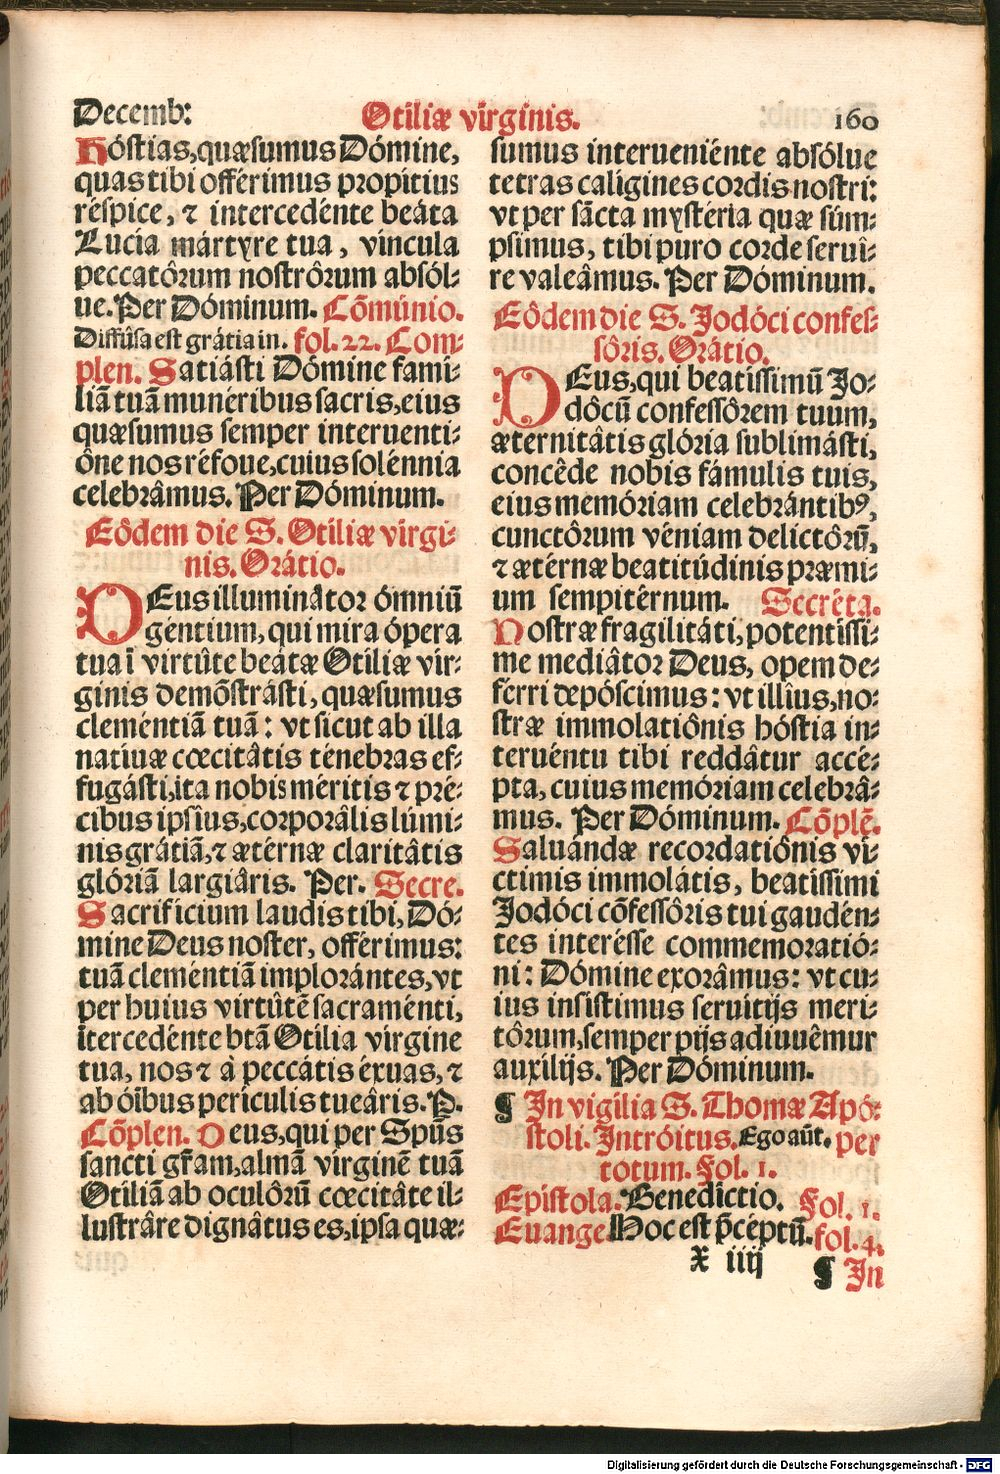 Decemb: Otiliæ virginis. 160
Hóstias, quæsumus Dómine,
quas tibi offérimus propitius
réspice, ⁊ intercedénte beáta
Lucía mártyre tua, víncula
peccatôrum nostrôrum absól-
ue. Per Dóminum. Cōmúnio.
Diffûsa est grátia in. fol. 22. Com-
plen. Satiásti Dómine famí-
liā tuā munéribus sacris, eius
quæsumus semper interuenti-
ône nos réfoue, cuius solénnia
celebrâmus. Per Dóminum.
Eôdem die S. Otiliæ virgi-
nis. Orátio.
DEus illuminâtor ómniū
géntium, qui mira ópera
tua ī virtûte beátæ Otíliæ vír-
ginis demōstrásti, quæsumus
cleméntiā tuā: vt sicut ab illa
natiuæ cœcitâtis ténebras ef-
fugásti, ita nobis méritis ⁊ pré-
cibus ipsîus, corporâlis lúmi-
nis grátiā, ⁊ ætérnæ claritâtis
glóriā largiâris. Per. Secre.
Sacrificium laudis tibi, Dó-
mine Deus noster, offérimus:
tuā cleméntiā implorántes, vt
per huius virtûtē sacraménti,
ītercedénte btā Otília vírgine
tua, nos ⁊ à peccátis éxuas, ⁊
ab óībus perículis tueâris. P.
Cōplen. Deus, qui per Spūs
sancti gr̄am, almā vírginē tuā
Otíliā ab oculôrū cœcitâte il-
lustrâre dignâtus es, ipsa quæ-
sumus interueniénte absólue
tetras calígines cordis nostri:
vt per sācta mystéria quæ súm-
psimus, tibi puro corde seruî-
re valeâmus. Per Dóminum.
Eôdem die S. Jodóci confes-
sôris. Orátio.
DEus, qui beatíssimū Jo-
dôcū confessôrem tuum,
æternitâtis glória sublimásti,
concêde nobis fámulis tuis,
eius memóriam celebrántibꝰ,
cunctôrum véniam delictôrū,
⁊ ætérnæ beatitúdinis præmi-
um sempitérnum. Secréta.
Nostræ fragilitáti, potentíssi-
me mediâtor Deus, opem de-
férri depóscimus: vt illîus, no-
stræ immolatiônis hóstia in-
teruéntu tibi reddâtur accé-
pta, cuius memóriam celebrâ-
mus. Per Dóminum. Cōplē.
Saluándæ recordatiônis ví-
ctimis immolátis, beatíssimi
Jodóci cōfessôris tui gaudén-
tes interésse commemoratió-
ni: Dómine exorâmus: vt cu-
ius insístimus seruítijs meri-
tôrum, semper pijs adiuuêmur
auxílijs. Per Dóminum.
¶ In vigilia S. Thomæ Apó-
stoli. Intróitus. Ego aūt. per
totum. Fol. 1.
Epístola. Benedíctio. Fol. 1.
Euange. Hoc est p̄céptū. fol. 4.
X iiij ¶ In
Digitalisierung gefördert durch die Deutsche Forschungsgemeinschaft - DFG